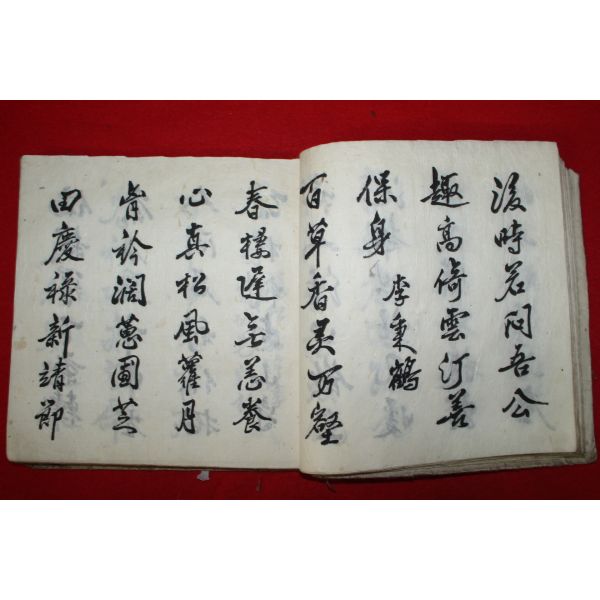 後時若問吾公
趣高倚雲汀善
保身 李秉鶴
百草香美百壑
春樓遅無恙養
心真松風蘿月
胷衿濶蔥圃芝
田慶祿新靖節